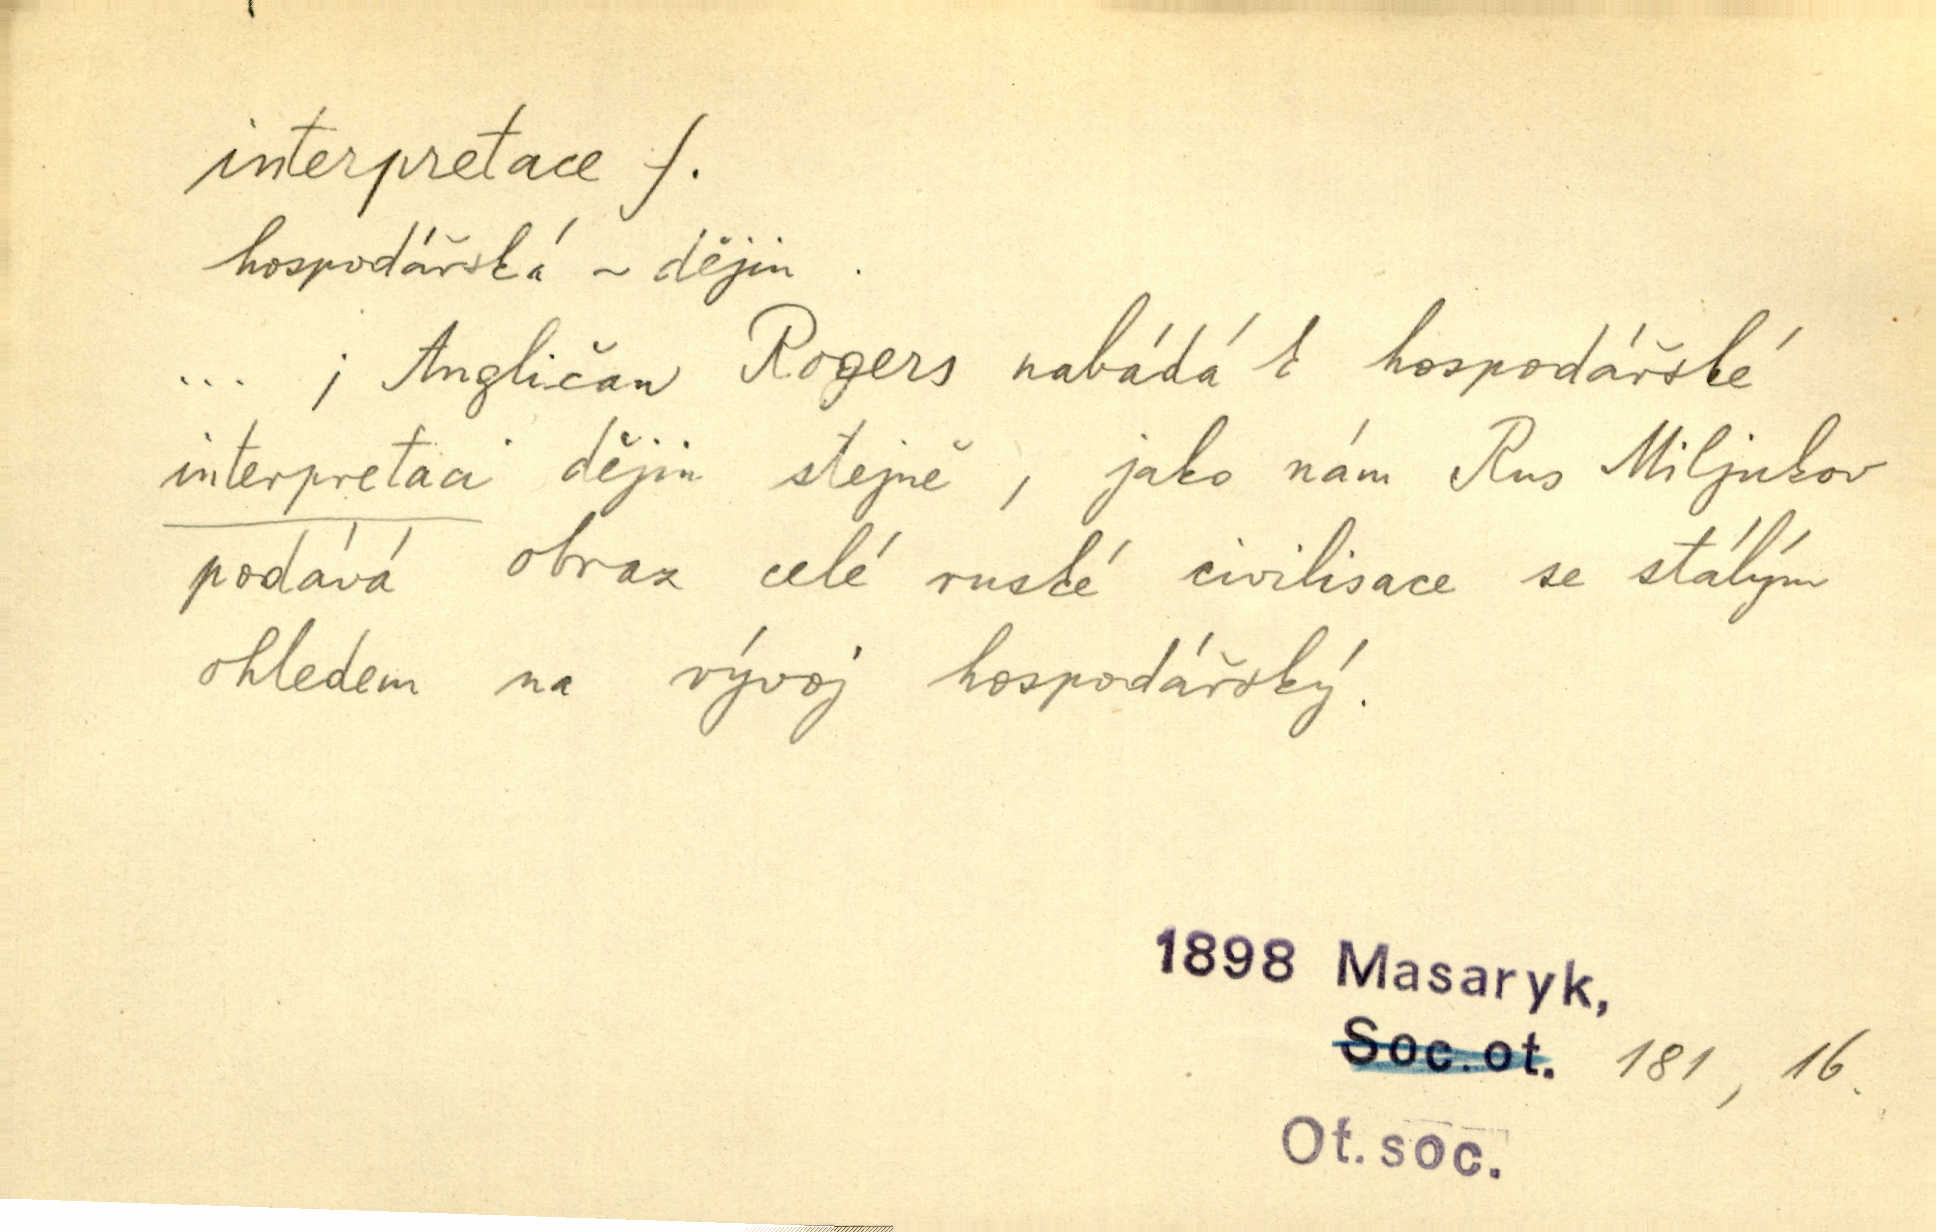 interpretace f.
hospodářská ~ dějin.
... ; Angličan Rogers nabádá k hospodářské
interpretaci dějin stejně, jako nám Rus Miljukov
podává obraz celé ruské civilisace se stálým
ohledem na vývoj hospodářský.
1898 Masaryk,
Soc. ot. 181, 16.
Ot. soc.